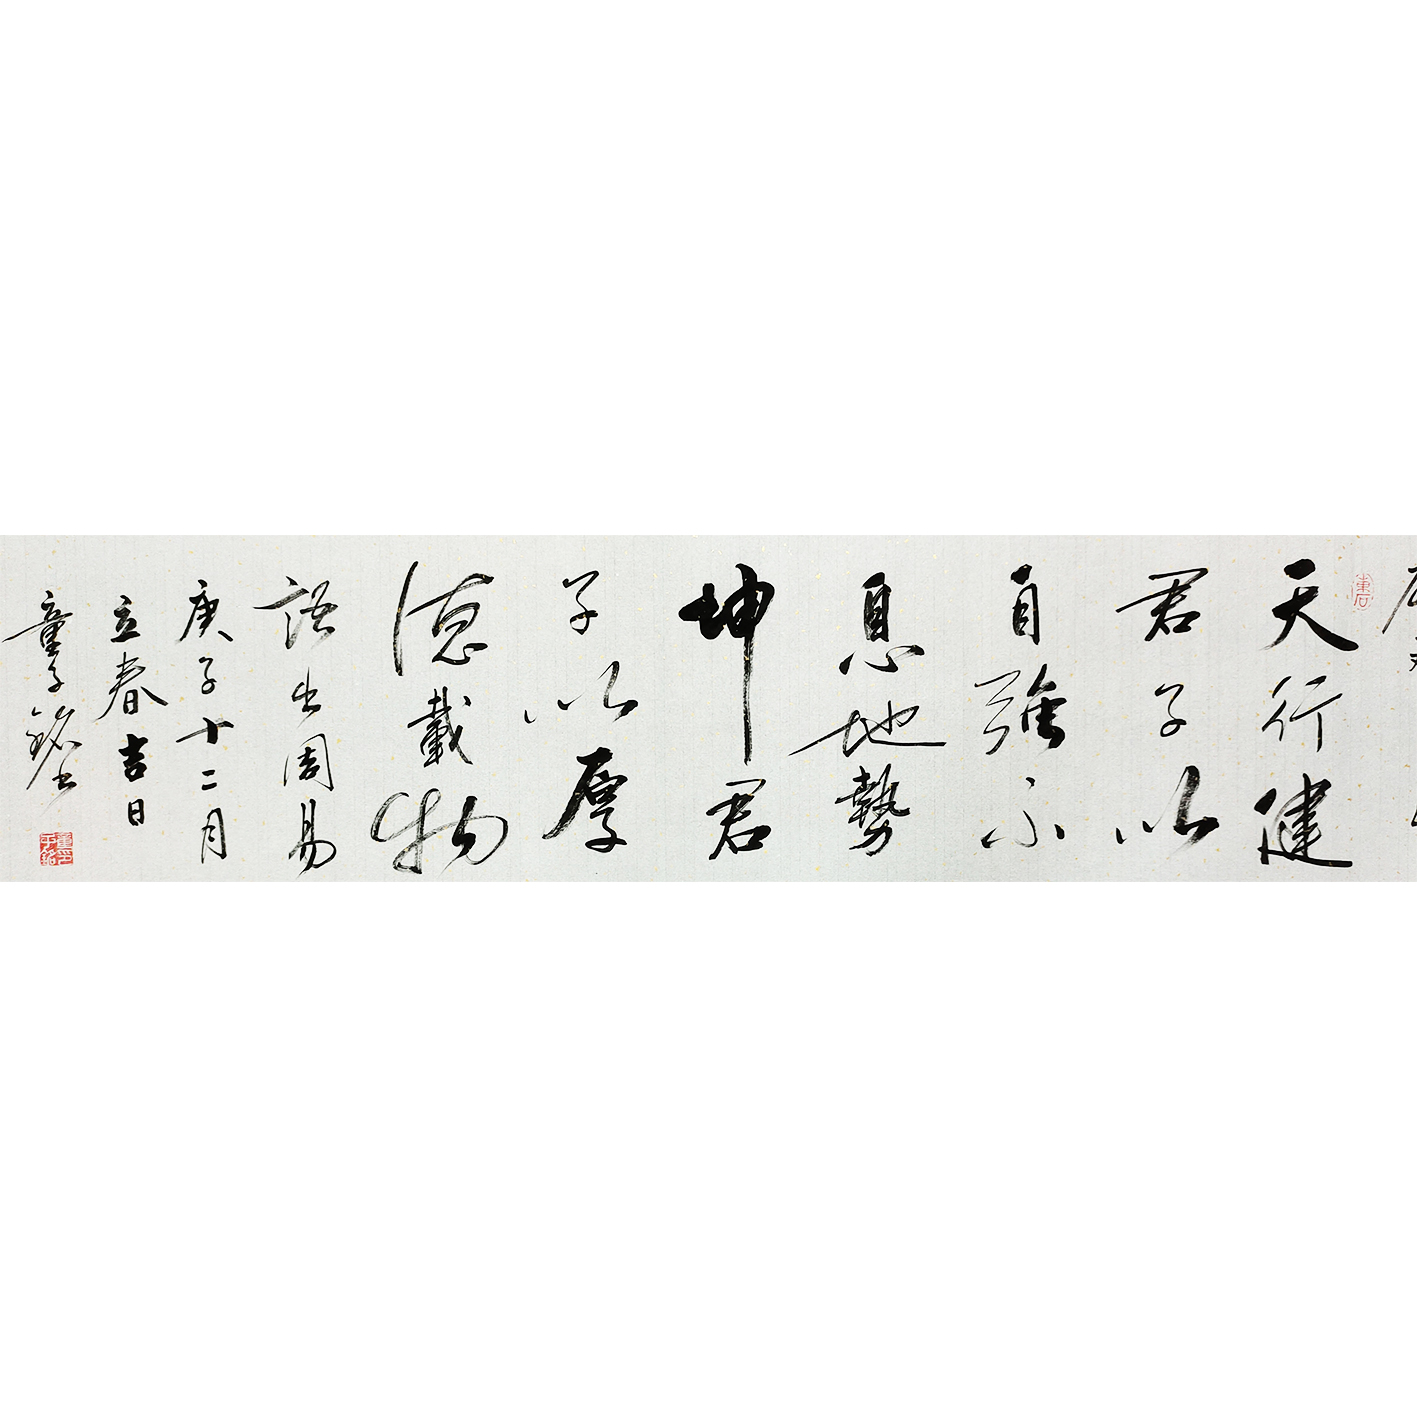 天行健
君子以
自強不
息地勢
坤君
子以厚
德載物
語出周易
庚子十二月
立春吉日
童子銘书